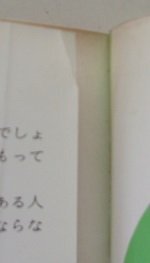 でしょ
もって
ある人
ならな